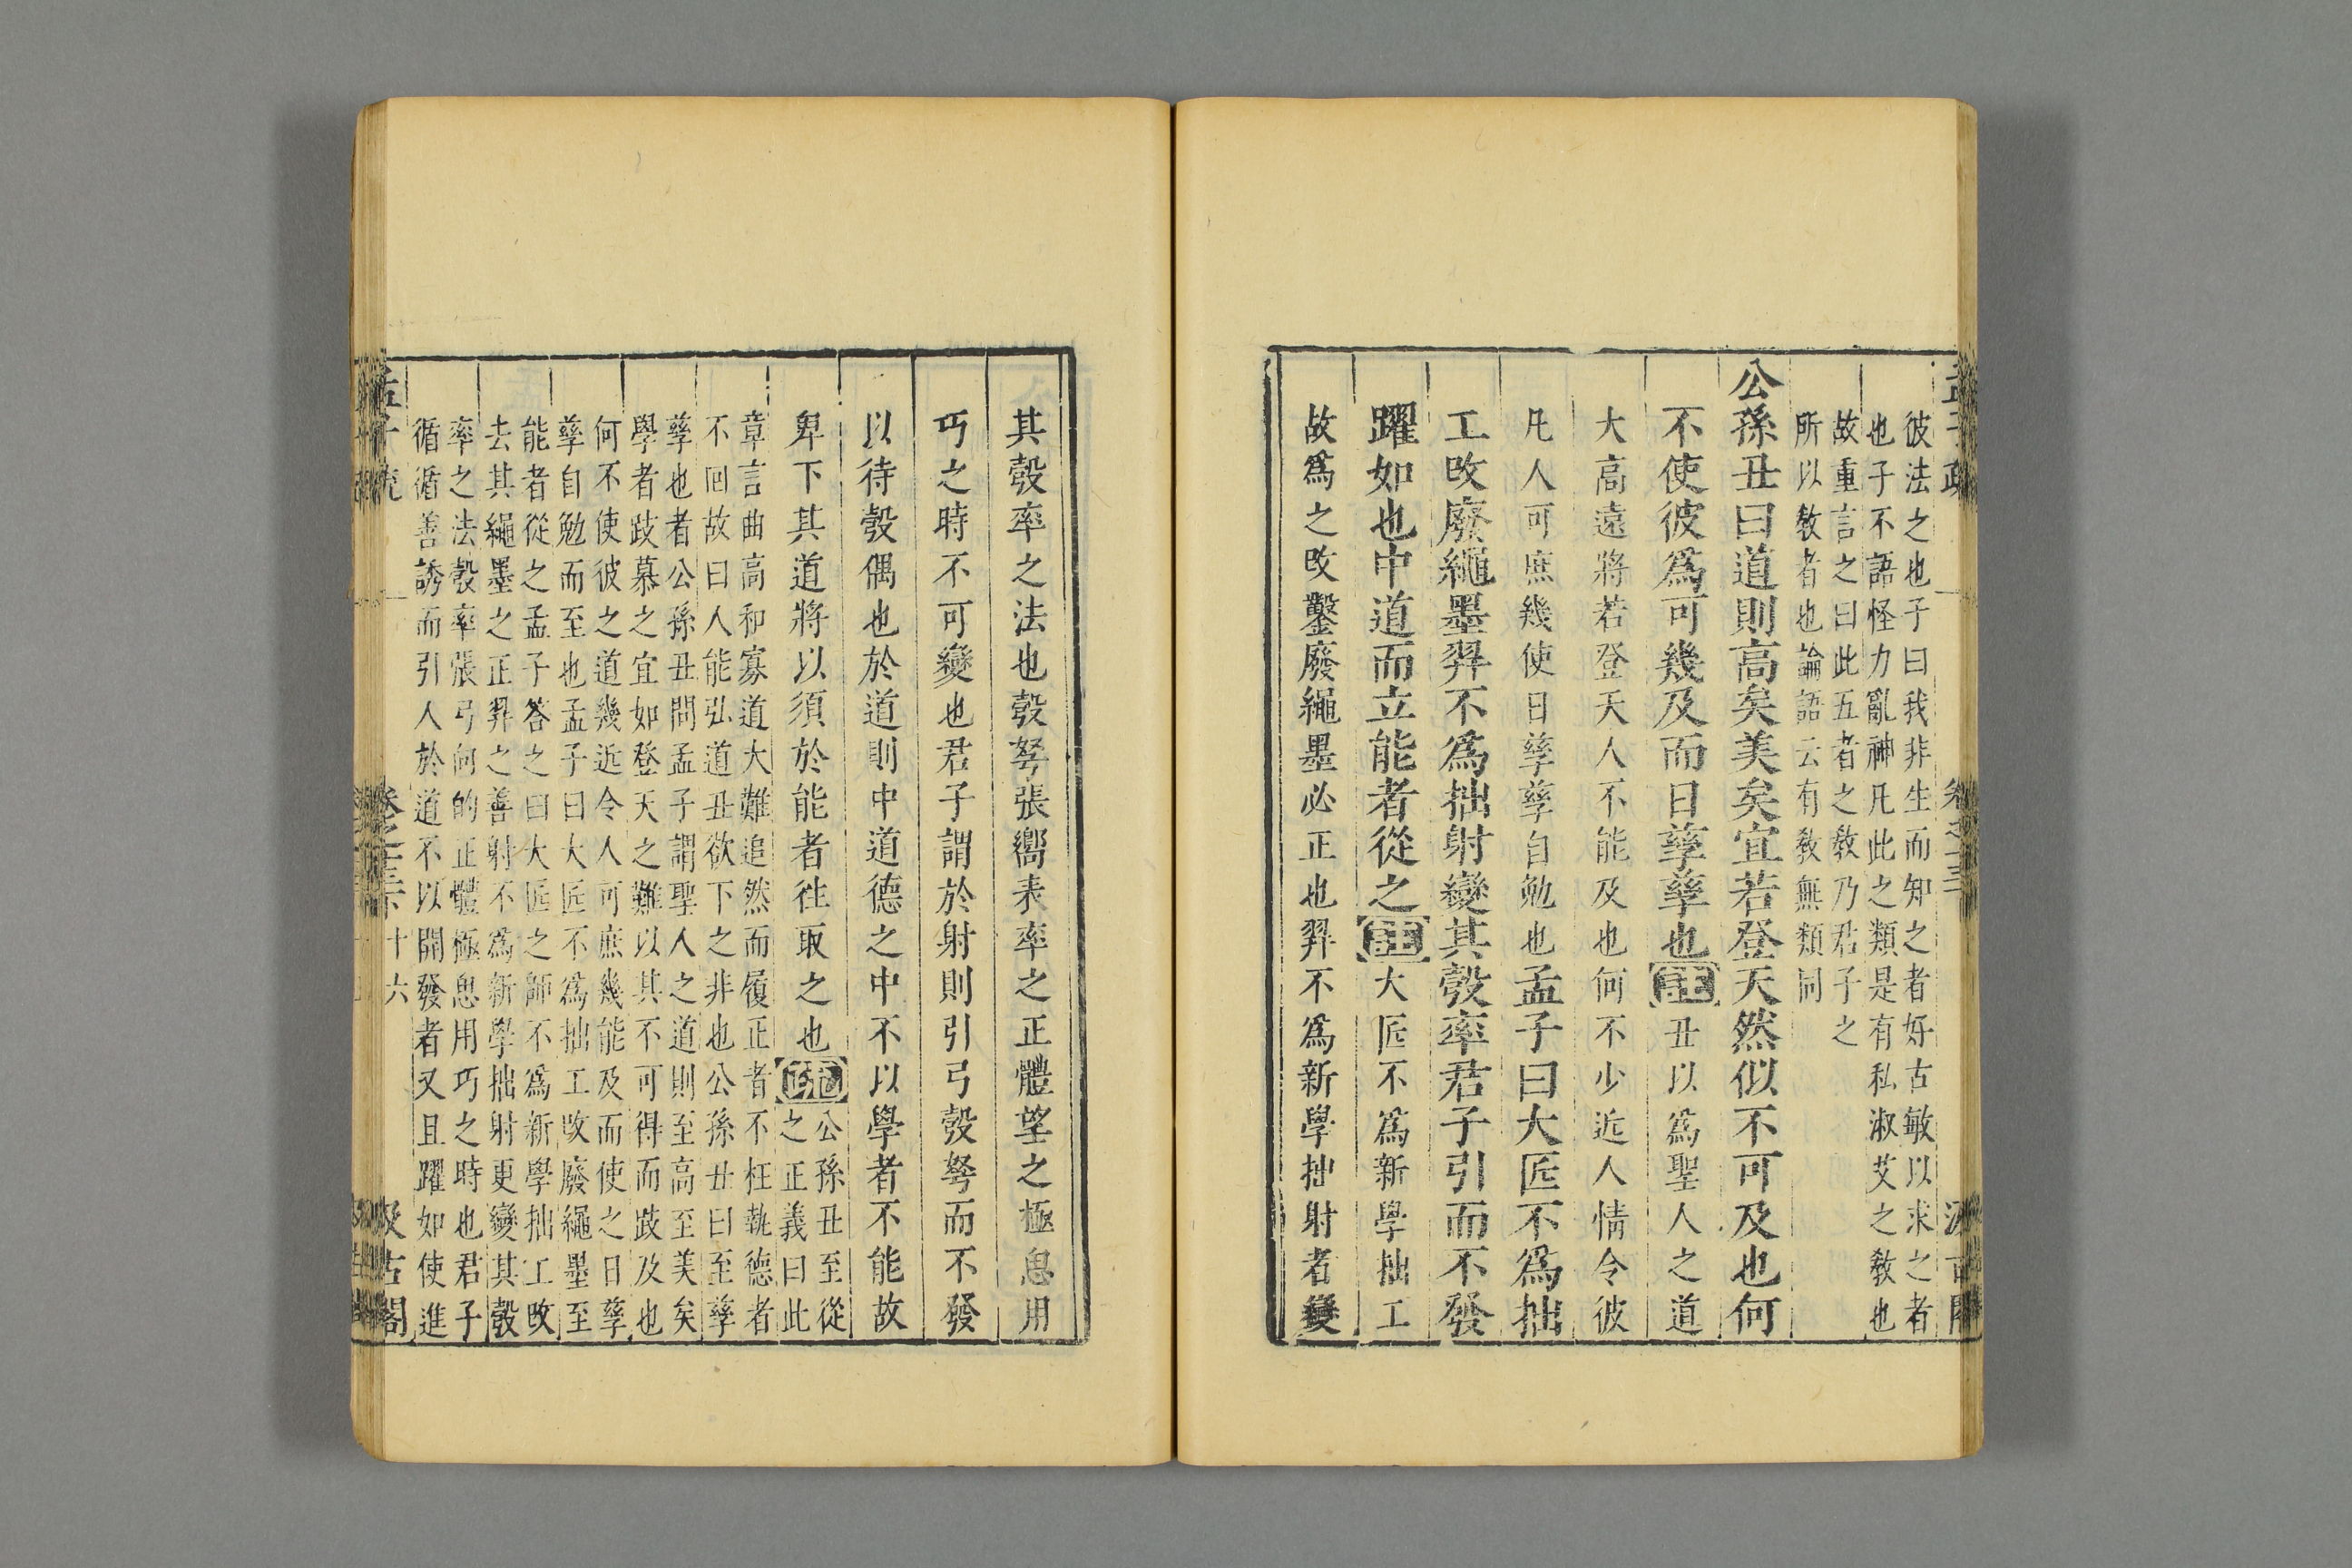 彼法之也子曰我非生而知之者好古敏以求之者
也子不語怪力亂神凡此之類是有私淑艾之敎也
故重言之曰此五者之敎乃君子之
所以敎者也論語云有敎無類同
公孫丑曰道則高矣美矣宜若登天然似不可及也何
不使彼爲可幾及而日孳孳也註丑以爲聖人之道
大高遠將若登天人不能及也何不少近人情令彼
凡人可庶幾使日孳孳自勉也孟子曰大匠不爲拙
工改廢繩墨羿不爲拙射變其彀率君子引而不發
躍如也中道而立能者從之註大匠不爲新學拙工
故爲之改鑿廢繩墨必正也羿不爲新學拙射者變
其彀率之法也彀弩張嚮表率之正體望之極思用
巧之時不可變也君子謂於射則引弓彀弩而不發
以待彀偶也於道則中道德之中不以學者不能故
卑下其道將以須於能者往取之也疏公孫丑至從
之正義曰此
章言曲高和寡道大難追然而履正者不枉執德者
不回故曰人能弘道丑欲下之非也公孫丑曰至孳
孳也者公孫丑問孟子謂聖人之道則至高至美矣
學者跂慕之宜如登天之難以其不可得而跂及也
何不使彼之道幾近令人可庶幾能及而使之日孳
孳自勉而至也孟子曰大匠不爲拙工改廢繩墨至
能者從之孟子答之曰大匠之師不爲新學拙工改
去其繩墨之正羿之善射不爲新學拙射更變其彀
率之法彀率張弓向的正體極思用巧之時也君子
循循善誘而引人於道不以開發者又且躍如使進
十六
汲古閣